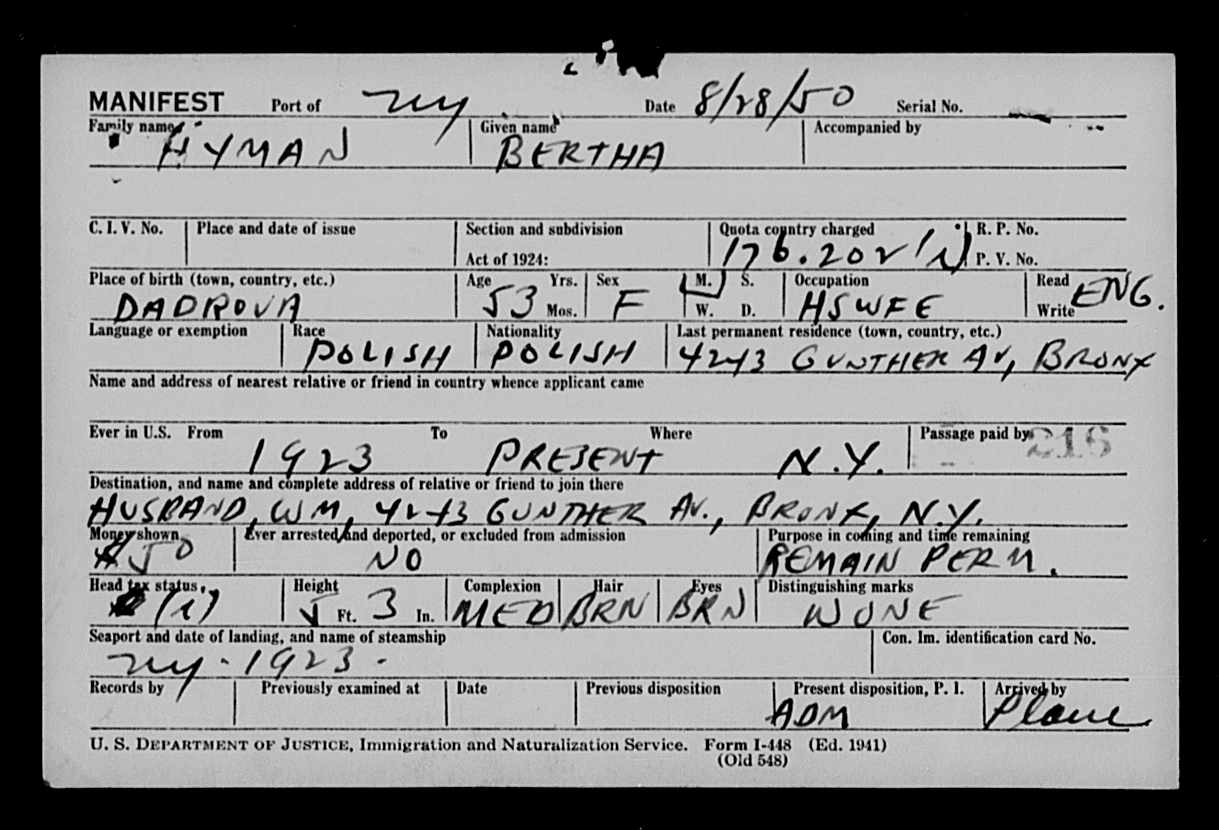 MANIFEST Port of ny Date 8/28/50 Serial No.
Family name Given name Accompanied by
HYMAN BERTHA
C. I. V. No. Place and date of issue Section and subdivision Quota country charged R. P. No.
Act of 1924: 176.202 (i) P. V. No.
Place of birth (town, country, etc.) Age Yrs. Sex M. S. Occupation Read
DADROVA 53 Mos. F W. D. HSWFE Write ENG.
Language or exemption Race Nationality Last permanent residence (town, country, etc.)
POLISH POLISH 4243 GUNTHER AV, BRONX
Name and address of nearest relative or friend in country whence applicant came
Ever in U.S. From To Where Passage paid by 216
1923 PRESENT N.Y.
Destination, and name and complete address of relative or friend to join there
HUSBAND, WM, 4243 GUNTHER AV., BRONX, N.Y.
Money shown Ever arrested and deported, or excluded from admission Purpose in coming and time remaining
$50 NO REMAIN PERM.
Head tax status Height Complexion Hair Eyes Distinguishing marks
(i) 5 Ft. 3 In. MED BRN BRN NONE
Seaport and date of landing, and name of steamship Con. Im. identification card No.
ny - 1923 -
Records by Previously examined at Date Previous disposition Present disposition, P. I. Arrived by
ADM Plane
U. S. DEPARTMENT OF JUSTICE, Immigration and Naturalization Service. Form I-448 (Ed. 1941)
(Old 548)